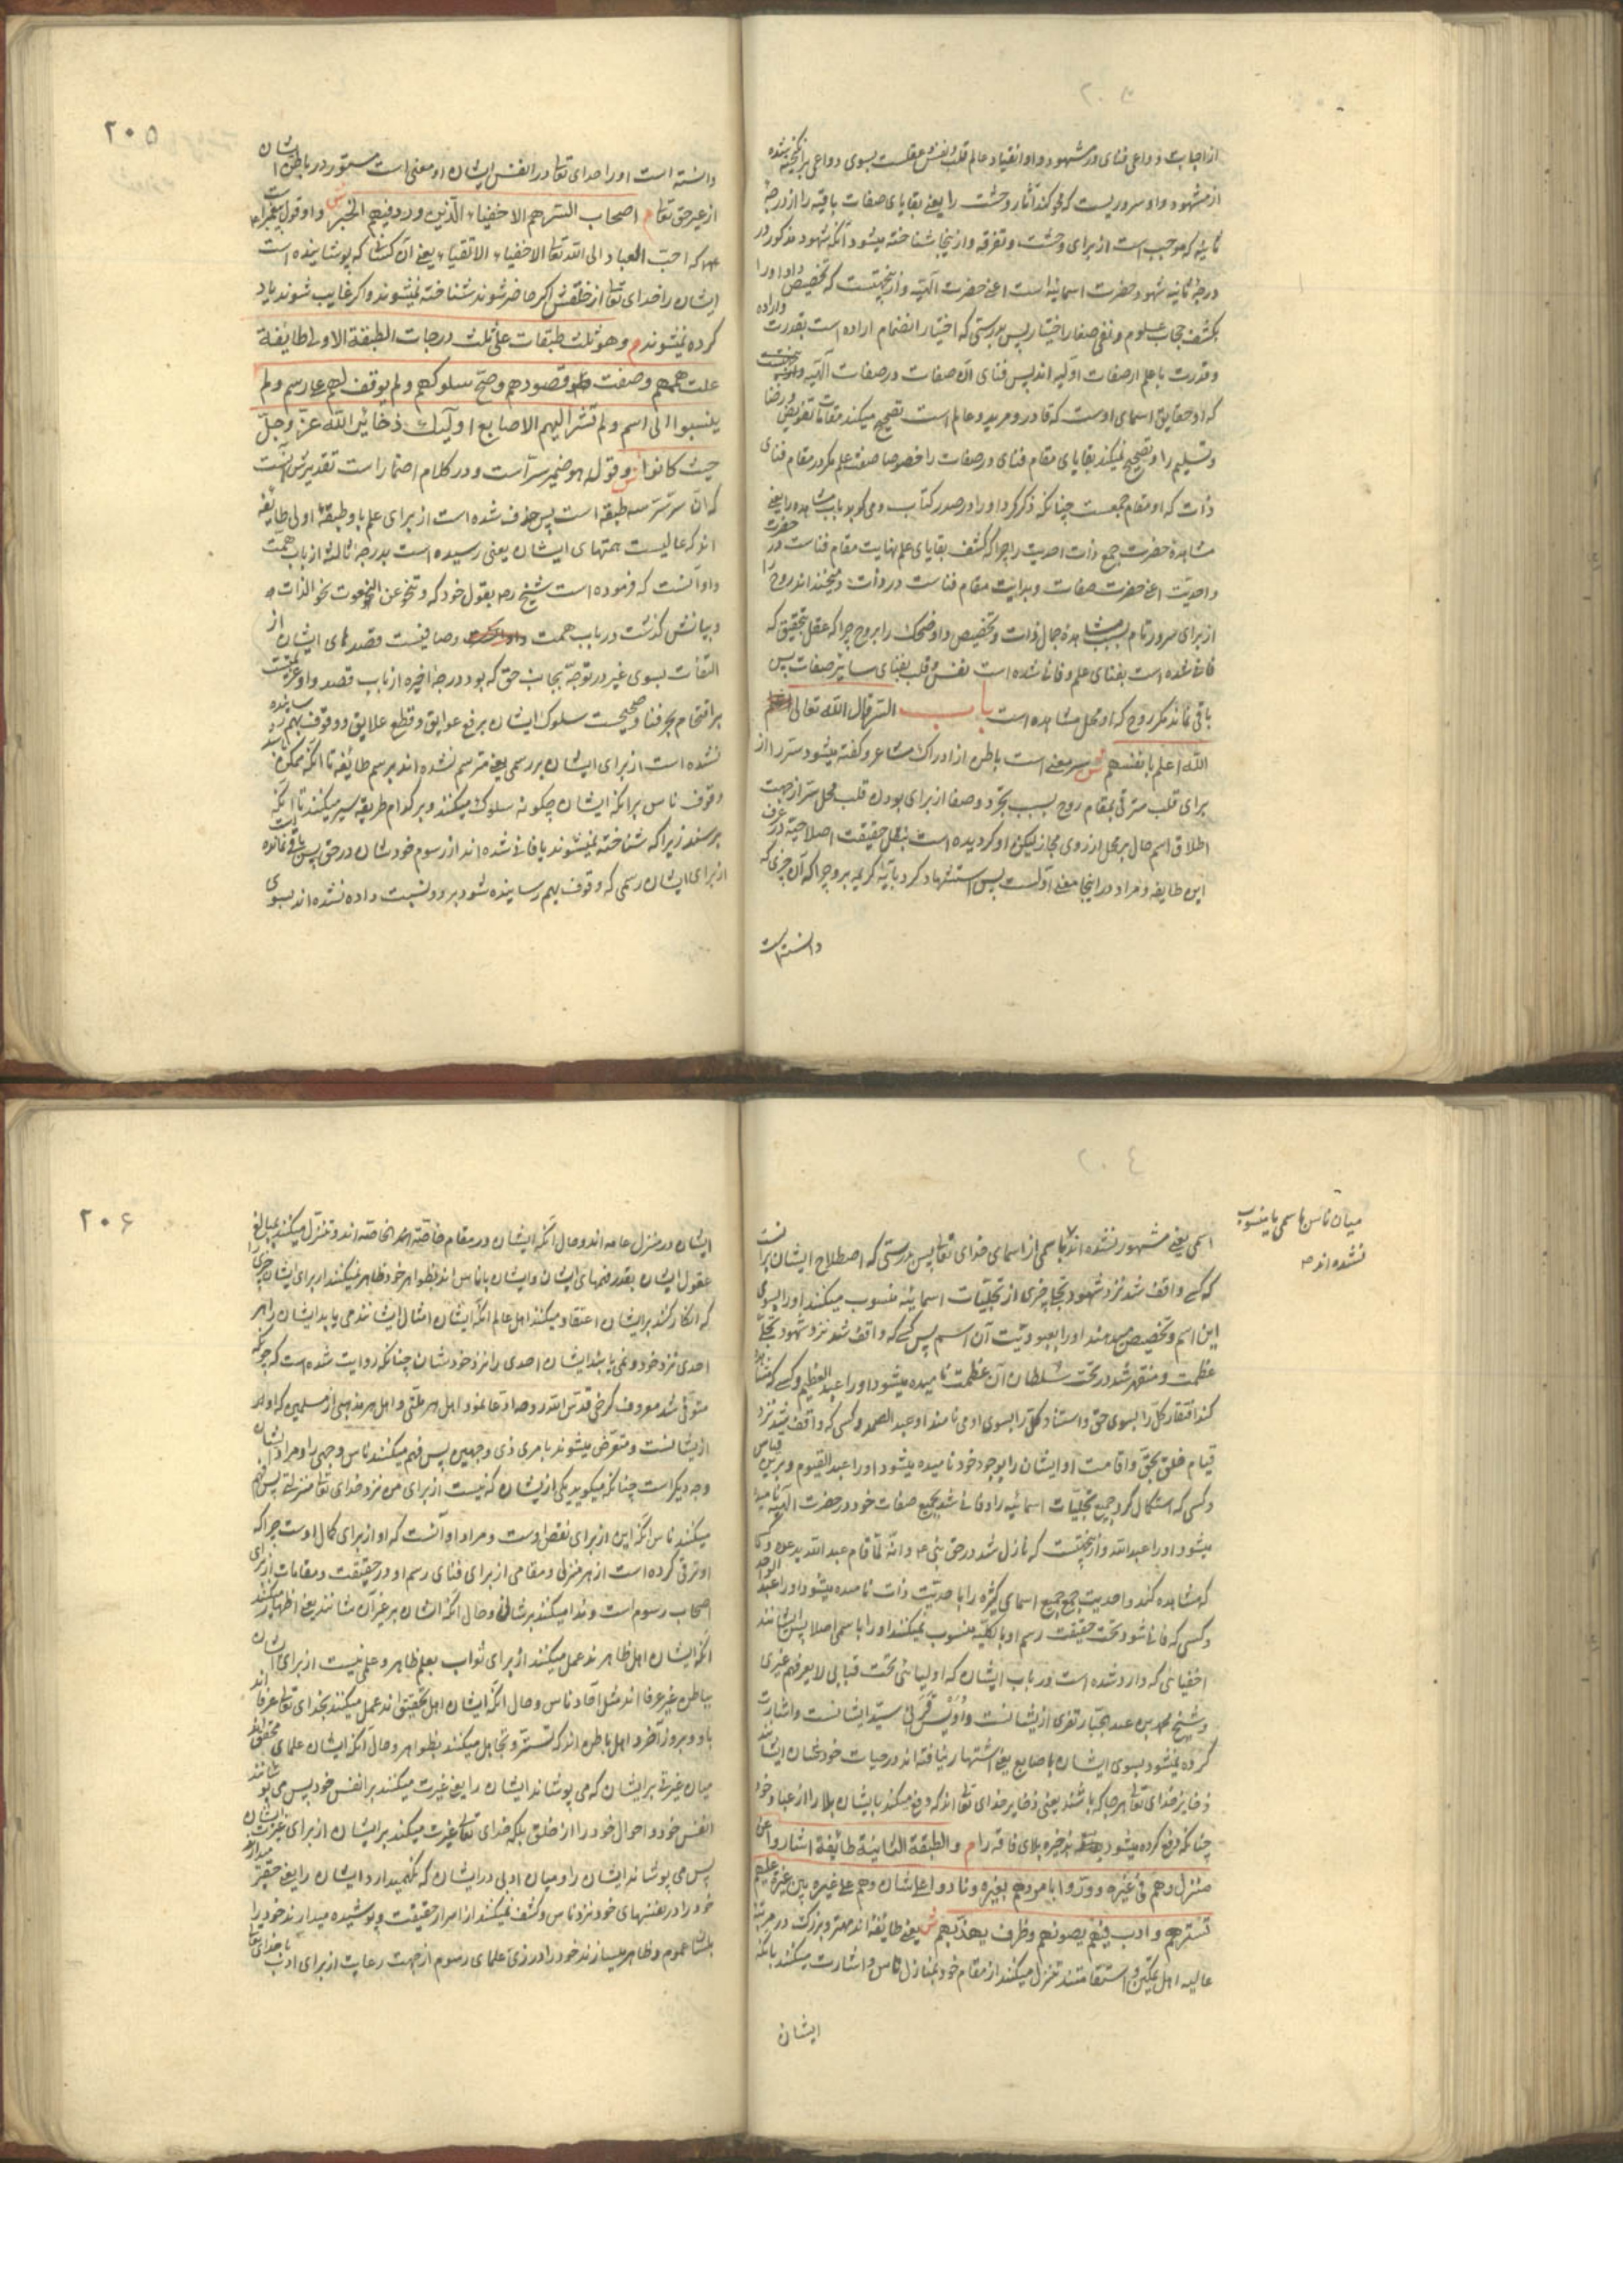 از اجابت دواعی فنای در مشهود و او انقیاد عالم قلب و نفس و عقلست بسوی دواعی برانگیخته شده
از مشهود و او سروریست که محو کند آثار وحشت را یعنی بقایای صفات باقیه را از درجهٔ
ثانیه که موجب است از برای وحشت و تفرقه و از ینجا شناخته میشود آنکه شهود مذکور در
درجهٔ ثانیه شهود حضرت اسمائیه است اعنی حضرت الهیه و از ینجهتست که تخصیص داد او را
بکشف حجاب علوم و نفی صفا اختیار پس بدرستی که اختیار انضمام اراده است بقدرت و اراده
و قدرت با علم از صفات اولیه اند پس فنای آن صفات در صفات الهیه و
که او حقایق اسمای اوست که قادر و مرید و عالم است تصحیح میکند مقامات تفویض و رضا
و تسلیم را و تصحیح نمیکند بقایای مقام فنای در صفات را خصوصا صفت علم مگر در مقام فنای
ذات که او مقام جمعست چنانکه ذکر کرد او را در صدر کتاب و می کوبد باب مشاهده را یعنی
مشاهدهٔ حضرت جمع ذات احدیت را چرا که کشف بقایای علم نهایت مقام فناست در حضرت
واحدیت اعنی حضرت صفات و بدایت مقام فناست در ذات و میخنداند روح را
از برای سرور تام بسبب مشاهدهٔ جمال ذات و تخصیص داد ضحک را بروح چرا که عقل بتحقیق که
فانی شده است بفنای علم و فانی شده است نفس و قلب بفنای سایر صفات پس
باقی نماند مگر روح که او محل مشاهده است باب السر قال الله تعالی
الله اعلم بانفسهم ش سر معنی است باطن از ادراک مشاعر و گفته میشود سر را از
برای قلب مترقی بمقام روح بسبب تجرد و صفا از برای بودن قلب محل سر از جهت
اطلاق اسم حال بر محل از روی مجاز لیکن او گردیده است بنقل حقیقت اصلاحیه در عرف
این طایفه و مراد در اینجا معنی اولست پس استشهاد کرد بآیهٔ کریمه برو چرا که آن چیزی که
دانسته است
۲۰۵
دانسته است او را خدای تعالی در انفس ایشان او معنی است مستور در باطن ایشان
از غیر حق تعالی م اصحاب السر هم الاخفیاء الذین ورد فیهم الخبر ش و او قول پیغمبر است
که احب العباد الی الله تعالی الاخفیاء الاتقیاء یعنی آن کسان که پوشاینده است
ایشان را خدای تعالی از خلقش اگر حاضر شوند شناخته نمیشوند و اگر غایب شوند یاد
کرده نمیشوند م و هو ثلث طبقات علی ثلث درجات الطبقة الاولی طایفة
علت هممهم وصفت قصودهم و صح سلوکهم و لم یوقف لهم علی رسم و لم
ینسبوا الی اسم و لم تشر الیهم الاصابع اولئک ذخائر الله عز و جل
حیث کانوا ش و قوله هو ضمیر سر است و در کلام اضمار است تقدیرش اینست
که آن سر سه طبقه است پس حذف شده است از برای علم باو طبقهٔ اولی طایفه
اند که عالیست همتهای ایشان یعنی رسیده است بدرجهٔ ثالثه از باب همت
و او آنست که فرموده است شیخ ره بقول خود که و تنحو عن النعوت نحو الذات
و بیانش گذشت در باب همت و صافیست قصدهای ایشان از
التفات بسوی غیر در توجه بجانب حق که بود درجهٔ اخیره از باب قصد و او عزیمتست
بر اقتحام بحر فنا و صحیحست سلوک ایشان برفع عوایق و قطع علایق و وقوف بهم رسانیده
نشده است از برای ایشان بر رسمی یعنی مترسم نشده اند برسم طایفه تا آنکه ممکن باشد
وقوف ناس بر آنکه ایشان چگونه سلوک میکنند و بر کدام طریقه سیر میکنند تا آنکه
برسند زیرا که شناخته نمیشوند یا فانی شده اند از رسوم خودشان در حق پس باقی نمانده است
از برای ایشان رسمی که وقوف بهم رسانیده شود برو و نسبت داده نشده اند بسوی
میان ناس باسمی یا منسوب
نشده اند
اسمی یعنی مشهور نشده اند باسمی از اسمای خدای تعالی پس بدرستی که اصطلاح ایشان بر آنست
که کسی واقف شد نزد شهود تجلی چیزی از تجلیات اسمائیه منسوب میکنند او را بسوی
این اسم و تخصیص میدهند او را بعبودیت آن اسم پس کسی که واقف شد نزد شهود تجلی
عظمت و منقهر شد در تحت سلطان آن عظمت نامیده میشود او را عبد العظیم و کسی که مشاهده
کند افتقار کل را بسوی حق و استناد کل را بسوی او می نامند او عبد الصمد و کسی که واقف شد نزد
قیام خلق بحق و اقامت او ایشان را بوجود خود نامیده میشود او را عبد القیوم و برین قیاس
و کسی که استکمال کرد جمیع تجلیات اسمائیه را و فانی شد بجمیع صفات خود در حضرت الهیه نامیده
میشود او را عبد الله و از ینجهتست که نازل شد در حق نبی ع م و انه لما قام عبد الله یدعوه و کسی
که مشاهده کند واحدیت جمع جمیع اسمای کثیره را باحدیت ذات نامیده میشود او را عبد الواحد
و کسی که فانی شود تحت حقیقت رسم او بالکلیه منسوب نمیکنند او را باسمی اصلا پس ایشانند
اخفیائی که وارد شده است در باب ایشان که اولیائی تحت قبابی لا یعرفهم غیری
و شیخ محمد بن عبد الجبار نفری از یشانست و اویس قرنی سید ایشانست و اشارت
کرده نمیشود بسوی ایشان باصابع یعنی اشتهار نیافته اند در حیات خودشان ایشانند
ذخایر خدای تعالی هر جا که باشند یعنی ذخایر خدای تعالی اند که دفع میکند بایشان بلا را از عباد خود
چنانکه دفع کرده میشود بذخیره بلای فاقه را م و الطبقة الثانیة طائفة اشاروا عن
منزل و هم فی غیره و وروا بامر و هم بغیره و نادوا علی شان و هم علی غیره بین غیرة علیهم
تسترهم و ادب فیهم یصونهم و ظرف یهذبهم ش یعنی طایفه اند مهتر و بزرگتر در مرتبهٔ
عالیه اهل تمکین و استقامتند تنزل میکنند از مقام خود بمنازل ناس و اشارت میکنند بآنکه
ایشان
۲۰۶
ایشان در منزل عامه اند و حال آنکه ایشان در مقام خاصة الخاصه اند و تنزل میکنند بمبالغ
عقول ایشان بقدر فهمهای ایشان و ایشان با ناس اند بظواهر خود ظاهر نمیکنند از برای ایشان چیزی را
که انکار کنند بر ایشان اعتقاد میکنند اهل عالم آنکه ایشان امثال ایشانند می یابد ایشان را هر
احدی نزد خود و نمی یابند ایشان احدی را نزد خودشان چنانکه روایت شده است که چون که
متوفی شد معروف کرخی قدس الله روحه ادعا نمود اهل هر ملتی و اهل هر مذهبی از مسلمین که او
از یشانست و متعرض میشوند بامری ذی وجهین پس فهم میکنند ناس وجهی را و مراد ایشان
وجه دیگر است چنانکه میگوید یکی از یشان که نیست از برای من نزد خدای تعالی منزلتی پس فهم
میکنند ناس آنکه این از برای نقص اوست و مراد او آنست که او از برای کمال اوست چرا که
او ترقی کرده است از هر منزلی و مقامی از برای فنای رسم او در حقیقت و مقامات از برای
اصحاب رسوم است و ندا میکنند بر شانی و حال آنکه ایشان بر غیر آن شانند یعنی اظهار میکنند
آنکه ایشان اهل ظاهرند عمل میکنند از برای ثواب بعلم ظاهر و علمی نیست از برای ایشان
بباطن غیر عرفا اند مثل آحاد ناس و حال آنکه ایشان اهل تحقیق اند عمل میکنند بخدای تعالی عرفا اند
باو و بروز آخر و اهل باطن اند که تستر و تجاهل میکنند بظواهر و حال آنکه ایشان علمای محقق اند
میان غیرة بر ایشان که می پوشاند ایشان را یعنی غیرت میکنند بر انفس خود پس می پوشانند
انفس خود و احوال خود را از خلق بلکه خدای تعالی غیرت میکند بر ایشان از برای عزت ایشان
پس می پوشاند ایشان را و میان ادبی در ایشان که نگهمیدارد ایشان را یعنی حقیر میدارند
خود را در نفسهای خود نزد ناس و کشف نمیکنند از اسرار حقیقت و پوشیده میدارند خود را
بلباس عموم و ظاهر میسازند خود را در زی علمای رسوم از جهت رعایت از برای ادب با خدای تعالی